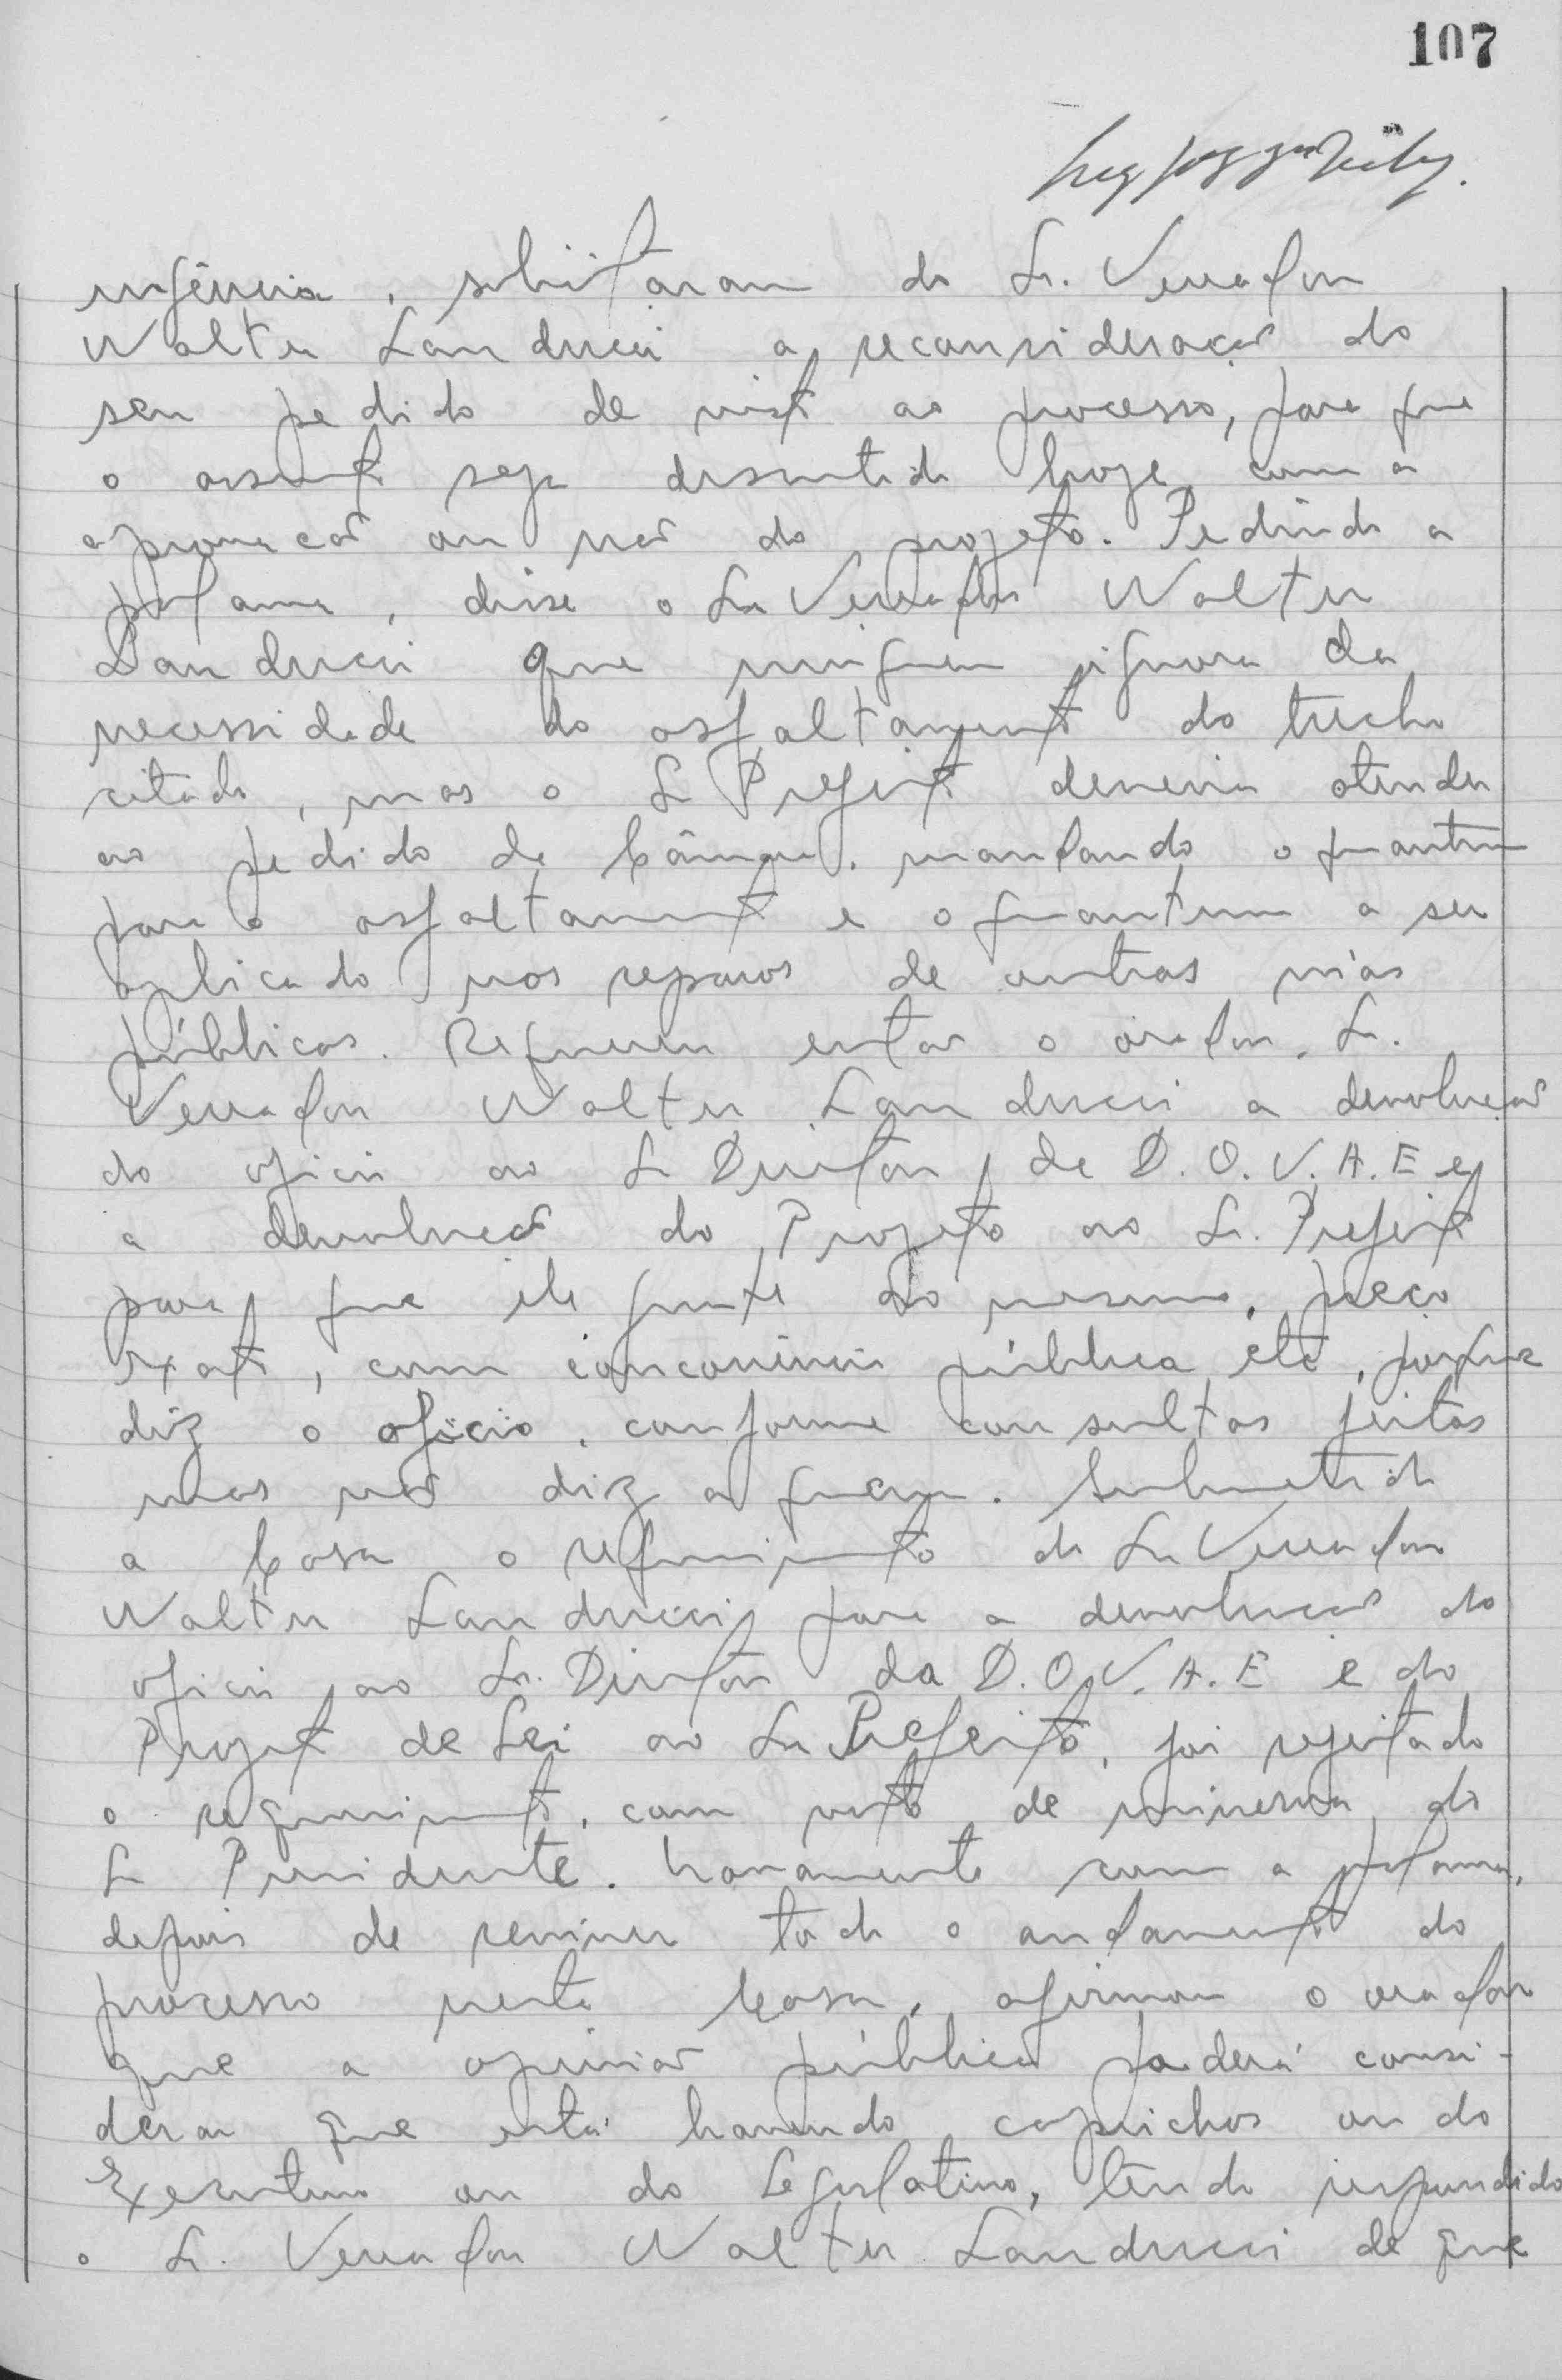 107
urgência, solicitaram do Sr. Vereador
Walter Landucci a reconsideração do
seu pedido de vista ao processo, para que
o assunto seja discutido hoje, com a
aprovação ou não do projeto. Pedindo a
palavra, disse o Sr Vereador Walter
Landucci que ninguem ignora da
necessidade do asfaltamento do trecho
citado, mas o Sr Prefeito deveria atender
ao pedido da Câmara, mandando o quantum
para o asfaltamento e o quantum a ser
aplicado nos reparos de outras vias
públicas. Requereu então o orador, Sr.
Vereador Walter Landucci a devolução
do oficio ao Sr Diretor da D.O.V.A.E e
a devolução do Projeto ao Sr. Prefeito
para que ele junte ao mesmo, preço
exato, com concorrência pública, etc, porque
diz o oficio, conforme consultas feitas
mas não diz a quem. Submetido
a Casa o requerimento do Sr Vereador
Walter Landucci, para a devolução do
oficio ao Sr. Diretor da D.O.V.A.E e do
Projeto de Lei ao Sr Prefeito, foi rejeitado
o requerimento, com voto de minerva do
Sr Presidente. Novamente com a palavra,
depois de reviver todo o andamento do
processo nesta Casa, afirmou o orador
que a opinião pública poderá consi-
derar que está havendo caprichos ou do
Executivo ou do Legislativo, tendo respondido
o Sr. Vereador Walter Landucci de que